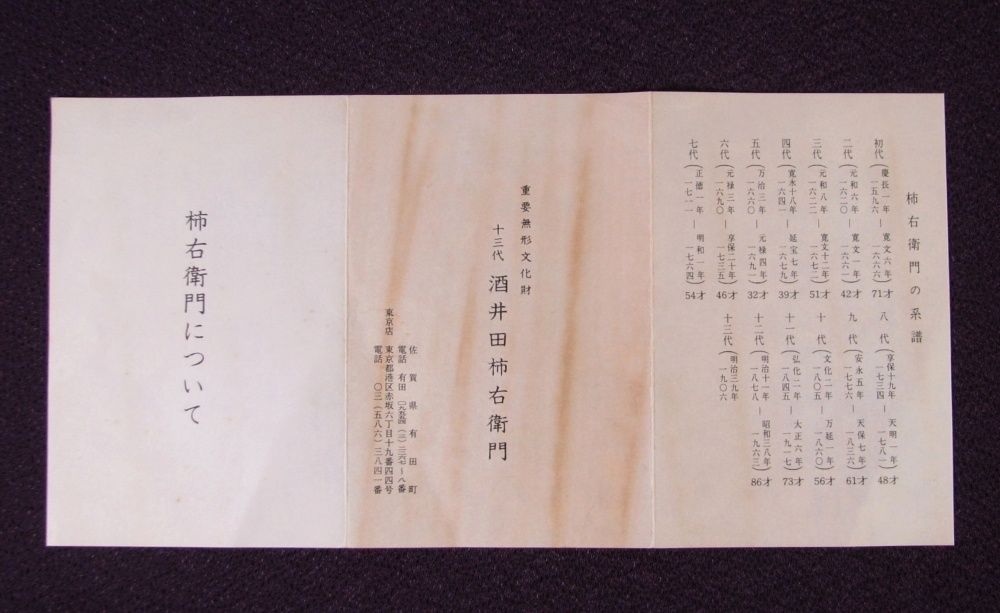 柿右衛門の系譜
初代(慶長一年 一五九六 — 寛文六年 一六六六)71才
二代(元和六年 一六二〇 — 寛文一年 一六六一)42才
三代(元和八年 一六二二 — 寛文十二年 一六七二)51才
四代(寛永十八年 一六四一 — 延宝七年 一六七九)39才
五代(万治三年 一六六〇 — 元禄四年 一六九一)32才
六代(元禄三年 一六九〇 — 享保二十年 一七三五)46才
七代(正徳一年 一七一一 — 明和一年 一七六四)54才
八代(享保十九年 一七三四 — 天明一年 一七八一)48才
九代(安永五年 一七七六 — 天保七年 一八三六)61才
十代(文化二年 一八〇五 — 万延一年 一八六〇)56才
十一代(弘化二年 一八四五 — 大正六年 一九一七)73才
十二代(明治十一年 一八七八 — 昭和三八年 一九六三)86才
十三代(明治三九年 一九〇六
重要無形文化財
十三代 酒井田柿右衛門
佐賀県有田町
電話 有田 (三)三六七一八番
東京店 東京都港区赤坂六丁目十九番四四号
電話 〇三(五八六)三八四一番
柿右衛門について